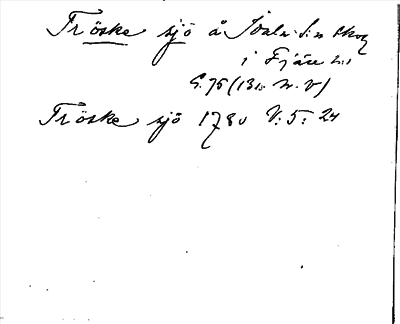 Tröske sjö å Idala s:ns skog
i Fjäre h:d
G. 75 (131. N. V)
Tröske sjö 1780 V: 5: 24